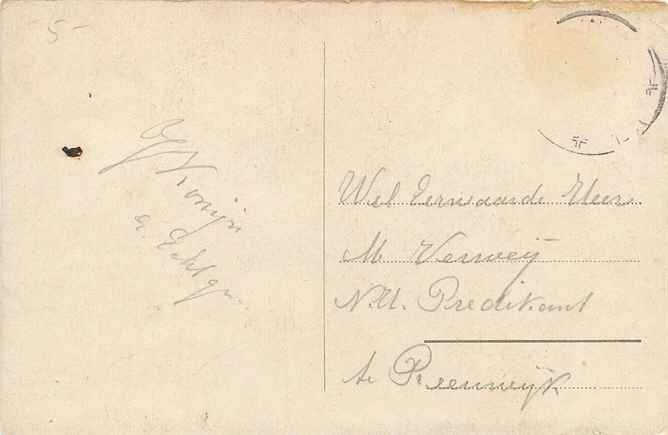 5-
J Konijn
e. Echtgn.
Wel Eerwaarde Heer
M. Verweij
N.H. Predikant
te Reeuwijk